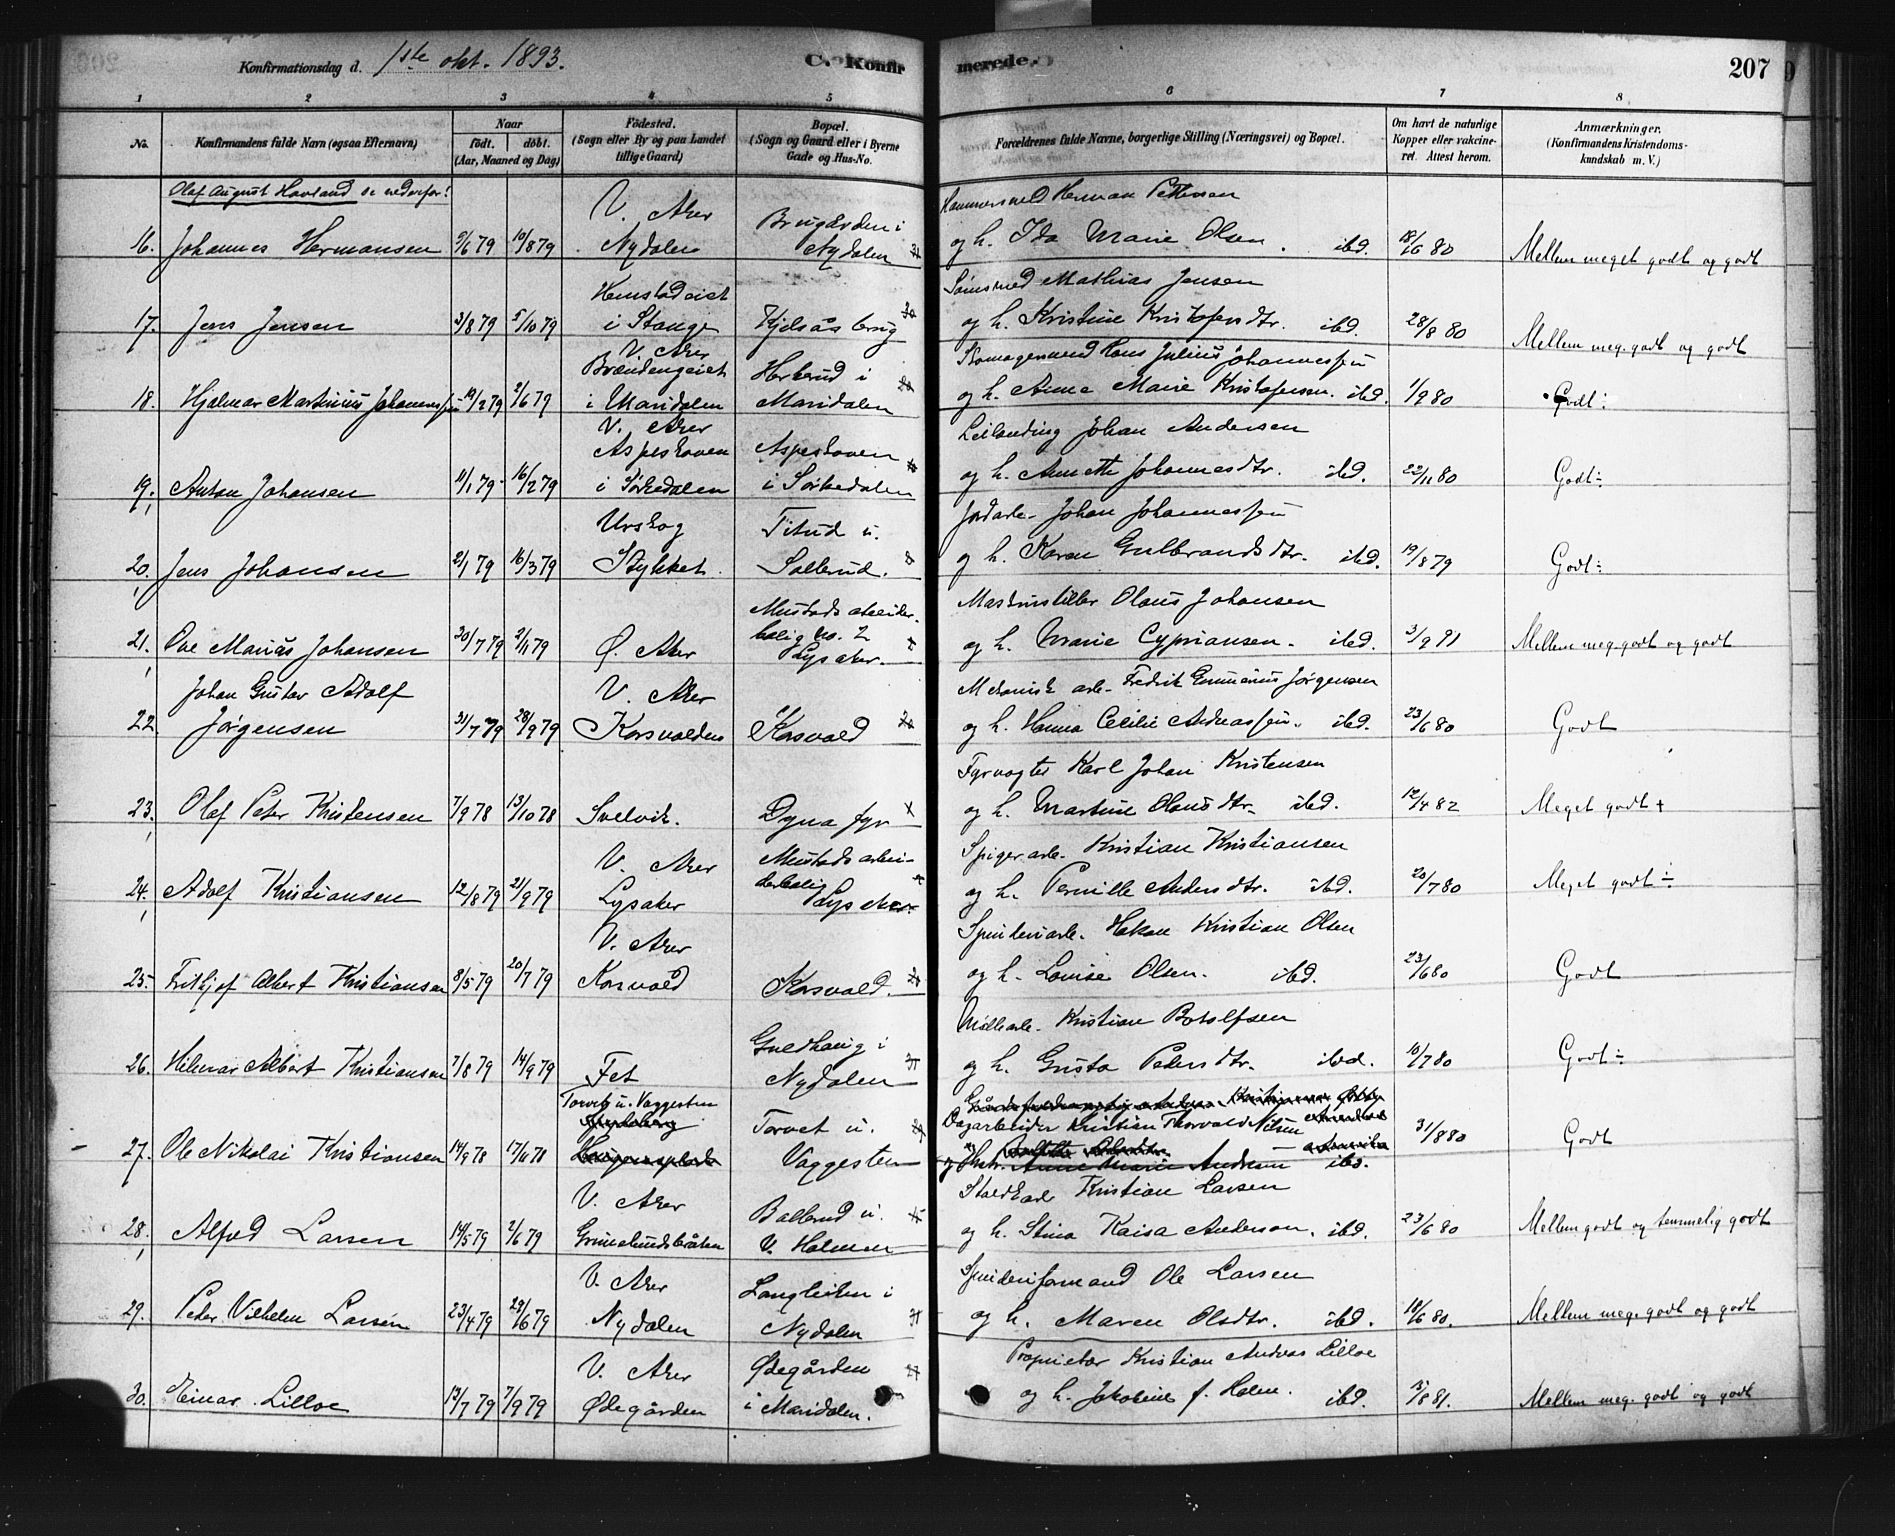 Konfirmationsdag d. 1ste okt. 1893.
C. Konfirmerede.
207
1 2 3 4 5 6 7 8
No.
Konfirmandens fulde Navn (ogsaa Efternavn)
Naar
født. døbt.
(Aar, Maaned og Dag)
Fødested.
(Sogn eller By og paa Landet
tillige Gaard)
Bopæl.
(Sogn og Gaard eller i Byerne
Gade og Hus-No.
Forældrenes fulde Navne, borgerlige Stilling (Næringsvei) og Bopæl.
Om havt de naturlige
Kopper eller vakcine-
ret. Attest herom.
Anmærkninger.
(Konfirmandens Kristendoms-
kundskab m. V.)
Olaf August Havland se nedenfor!
V. Aker Brugården i Hammersmed Herman Pettersen
16. Johannes Hermansen 9/6 79 10/8 79 Nydalen Nydalen og h. Ida Marie Olsen. ibd. 18/6 80 Mellem meget godt og godt
Hemstadeiet Mathias Jensen
17. Jens Jensen 3/8 79 5/10 79 i Stange Kjelsås brug og h. Kristine Kristofersdtr. ibd. 28/8 80 Mellem meg. godt og godt
V. Aker
Brændengeiet Herkerud i Hans Julius Johannessen
18. Hjalmar Martinius Johannessen 19/2 79 2/6 79 i Maridalen Maridalen og h. Anna Marie Kristofersen. ibd. 1/9 80 Godt ÷
V. Aker
Aspeskoven Aspeskoven Leilending Johan Andersen
19. Anton Johansen 11/1 79 16/2 79 i Sørkedalen i Sørkedalen og h. Annette Johannesdtr. ibd. 22/11 80 Godt ÷
Urskog Titud u. Jordarb. Johan Johannessen
20. Jens Johansen 2/1 79 16/3 79 Stykket. Sollerud. og h. Karen Gulbrandsdtr. ibd. 19/8 79 Godt ÷
Mustads arbeider-
bolig no. 2 Maskinstiller Olaus Johansen
21. Ove Marius Johansen 30/7 79 2/11 79 Ø. Aker Lysaker. og h. Marie Cypriansen. ibd. 3/9 91 Mellem meg. godt og godt
Johan Gustav Adolf V. Aker Mekanisk arb. Fredrik Jørgensen
22. Jørgensen 31/7 79 28/9 79 Korsvolden Korsvold og h. Hanna Cecilie Andreassen. ibd. 23/6 80 Godt
Fyrvogter Karl Johan Kristensen
23. Olaf Peter Kristensen 7/9 78 13/10 78 Svelvik. Dyna fyr og h. Martine Olausdtr. ibd. 12/4 82 Meget godt +
V. Aker Mustads arbei-
derbolig Spigerarb. Kristian Kristiansen
24. Adolf Kristiansen 12/8 79 21/9 79 Lysaker Lysaker og h. Pernille Andersdtr. ibd. 20/7 80 Meget godt ÷
V. Aker Spinderiarb. Hakon Kristian Olsen
25. Frithjof Albert Kristiansen 8/5 79 20/7 79 Korsvold Korsvold. og h. Lovise Olsen. ibd. 23/6 80 Godt
Guldhaug i Møllearb. Kristian Botolfsen
26. Hilmar Albert Kristiansen 7/8 79 14/9 79 Fet Nydalen og h. Gusta Petersdtr. ibd. 10/7 80 Godt ÷
Torvet u. Vaggesten Torvet u. Dagarbeider Kristian Thorvald Nilsen
27. Ole Nikolai Kristiansen 14/9 78 17/11 78 Vaggesten Anne Marie Andersen ibd. 31/8 80 Godt
V. Aker Ballerud u. Kristian Larsen
28. Alfred Larsen 14/5 79 2/6 79 Grimelundsbråten V. Holmen og h. Stina Kaisa Anderson. ibd. 23/6 80 Mellem godt og temmelig godt
V. Aker Langleiten i Spinderiformand Ole Larsen
29. Peter Vilhelm Larsen 23/4 79 29/6 79 Nydalen Nydalen og h. Maren Olsdtr. ibd. 18/6 80. Mellem meg. godt og godt
V. Aker Ødegården Proprietær Kristian Andreas Lilloe
30. Einar Lilloe 13/7 79 7/9 79 Ødegården i Maridalen. og h. Jakobine f. Holm. ibd. Mellem meg. godt og godt